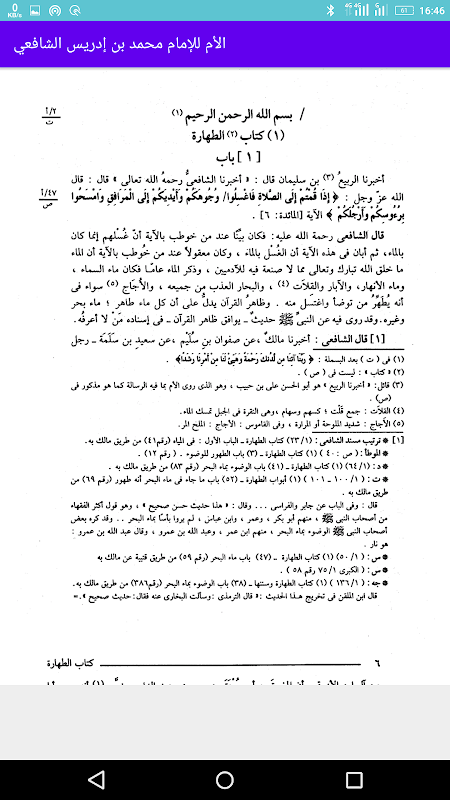 0 KB/s 4G 4G 61 16:46
الأم للإمام محمد بن إدريس الشافعي
/ بسم الله الرحمن الرحيم (١)
٢/أ
ت
(١) كتاب (٢) الطهارة
[ ١ ] باب
أخبرنا الربيعُ (٣) بن سليمان قال : « أخبرنا الشافعىُّ رحمهُ الله تعالى » قال : قال
الله عز وجل : ﴿ إِذَا قُمْتُمْ إِلَى الصَّلاةِ فَاغْسِلُوا/ وُجُوهَكُمْ وَأَيْدِيَكُمْ إِلَى الْمَرَافِقِ وَامْسَحُوا
٤٧/أ
ص
بِرُءُوسِكُمْ وَأَرْجُلَكُمْ ﴾ الآية [المائدة: ٦] .
قال الشافعى رحمة الله عليه: فكان بيِّنًا عند من خوطب بالآية أنّ غُسْلهم إنما كان
بالماء، ثم أبان فى هذه الآية أن الغُسْل بالماء ، وكان معقولاً عند من خُوطب بالآية أن الماء
ما خلق الله تبارك وتعالى مما لا صنعة فيه للآدميين ، وذكر الماء عامًا فكان ماء السماء ،
وماء الأنهار، والآبار والقلاَت (٤) ، والبحار العذب من جميعه ، والأُجَاج (٥) سواء فى
أنه يُطَهِّرُ من توضأ واغتسل منه . وظاهرُ القرآن يدلُّ على أن كل ماء طاهر ؛ ماء بحر
وغيره. وقد روى فيه عن النبىِّ ﷺ حديثٌ ـ يوافق ظاهر القرآن ـ فى إسناده مَنْ لا أعرفُه.
[١] قال الشافعى : أخبرنا مالك ٌ، عن صفوان بنِ سلُيم ،عن سعيد بن سلَمَة ـ رجل
(١) فى ( ت ) بعد البسملة : ﴿ رَبَّنَا آتِنَا مِن لَّدُنكَ رَحْمَةً وَهَيِّئْ لَنَا مِنْ أَمْرِنَا رَشَدًا﴾ .
(٢) « كتاب » : ليست فى ( ص ) .
(٣) قائل: « أخبرنا الربيع » هو أبو الحسن على بن حبيب ، وهو الذى روى الأم بما فيه الرسالة كما هو مذكور فى
(ص) .
(٤) القِلاَت: جمع قَلْت ؛ كسهم وسهام ،وهى النقرة فى الجبل تمسك الماء.
(٥) الأُجَاج: شديد الملوحة أو المرارة ، وفى القاموس: الأجاج : الملح المر.
[١] * ترتيب مسند الشافعى : (١/ ٢٣) كتاب الطهارة ـ الباب الأول : فى المياه (رقم٤١) من طريق مالك به.
* الموطأ : ( ص : ٤٠ ) (١) كتاب الطهارة ـ (٣) باب الطهور للوضوء . ( رقم ١٢ ) .
* د : (١/ ٦٤) (١) كتاب الطهارة ـ (٤١) باب الوضوء بماء البحر (رقم ٨٣) من طريق مالك به.
* ت : (١/ ١٠٠ ـ ١٠١ ) (١) أبواب الطهارة ـ (٥٢) باب ما جاء فى ماء البحر أنه طهور (رقم ٦٩) من
طريق مالك به.
قال : وفى الباب عن جابر والفراسى ... وقال : « هذا حديث حسن صحيح » ، وهو قول أكثر الفقهاء
من أصحاب النبى ﷺ ، منهم أبو بكر ، وعمر ، وابن عباس ، لم يروا بأسًا بماء البحر .. وقد كره بعض
أصحاب النبى ﷺ الوضوء بماء البحر ، منهم ابن عمر ، وعبد الله بن عمرو ، وقال عبد الله بن عمرو :
هو نار .
* س : (١/ ٥٠) (١) كتاب الطهارة ـ (٤٧) باب ماء البحر (رقم ٥٩) من طريق قتيبة عن مالك به
* س : ( الكبرى ١/ ٧٥ رقم ٥٨ ) .
* جه : (١/ ١٣٦ ) (١) كتاب الطهارة وسننها ـ (٣٨) باب الوضوء بماء البحر (رقم٣٨٦) من طريق مالك به.
قال ابن الملقن فى تخريج هـذا الحديث :« قال الترمذى : وسألت البخارى عنه فقال: حديث صحيح ».=
٦ كتاب الطهارة